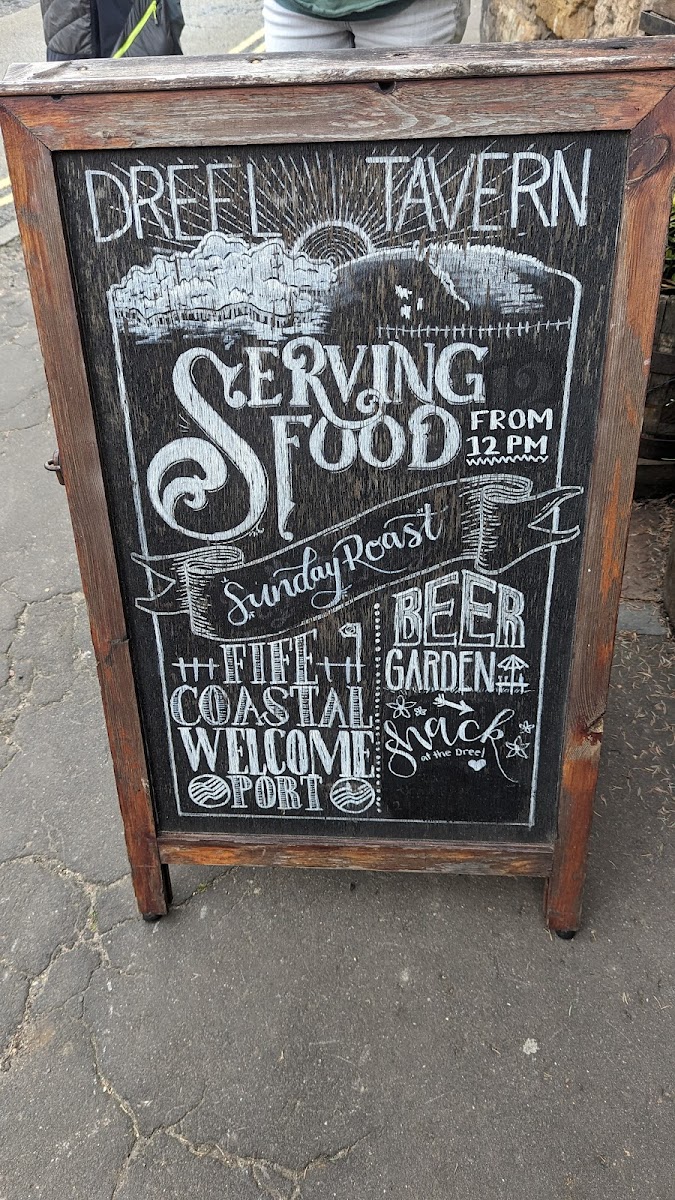 DREEL TAVERN
SERVING
FOOD
FROM
12 PM
Sunday Roast
FIFE
COASTAL
WELCOME
PORT
BEER
GARDEN
Shack
at the Dreel